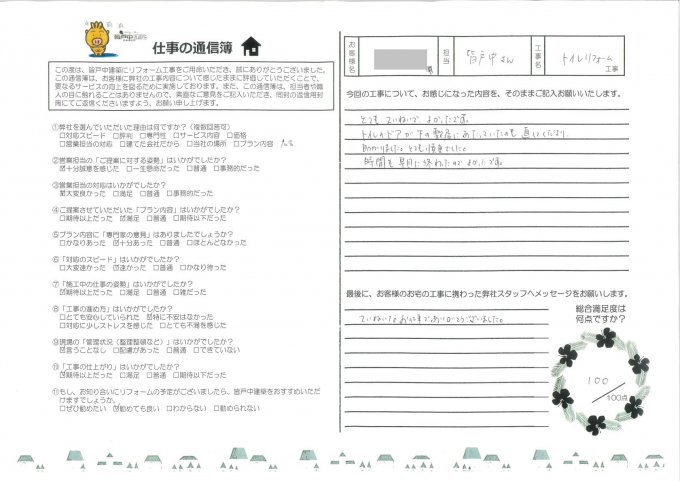 皆戸中建築
仕事の通信簿
この度は、皆戸中建築にリフォーム工事をご用命いただき、誠にありがとうございました。
この通信簿は、お客様に弊社の工事内容について感じたままに評価していただくことで、
更なるサービスの向上を図るために実施しております。また、この通信簿は、担当者や職
人の目に触れることはありませんので、素直なご意見をご記入いただき、同封の返信用封
筒にてご返信くださいますよう、お願い申し上げます。
①弊社を選んでいただいた理由は何ですか?(複数回答可)
□対応スピード □評判 □専門性 □サービス内容 □価格
□営業担当の対応 □建てた会社だから □当社の場所 □プラン内容
②営業担当の「ご提案に対する姿勢」はいかがでしたか?
☑十分誠意を感じた □一生懸命だった □普通 □事務的だった
③営業担当の対応はいかがでしたか?
☑大変良かった □満足 □普通 □事務的だった
④ご提案させていただいた「プラン内容」はいかがでしたか?
□期待以上だった ☑満足 □普通 □期待以下だった
⑤プラン内容に「専門家の意見」はありましたでしょうか?
□かなりあった ☑十分あった □普通 □ほとんどなかった
⑥「対応のスピード」はいかがでしたか?
□大変速かった ☑速かった □普通 □かなり待った
⑦「施工中の仕事の姿勢」はいかがでしたか?
☑期待以上だった □満足 □普通 □雑だった
⑧「工事の進め方」はいかがでしたか?
□とても安心していられた ☑特に不安はなかった
□対応に少しストレスを感じた □とても不満を感じた
⑨現場の「管理状況(整理整頓など)」はいかがでしたか?
☑言うことなし □配慮があった □普通 □できていない
⑩「工事の仕上がり」はいかがでしたか?
☑期待以上だった □満足 □普通 □期待以下だった
⑪もし、お知り合いにリフォームの予定がございましたら、皆戸中建築をおすすめいただ
けますでしょうか。
□ぜひ勧めたい ☑勧めても良い □わからない □勧められない
お客様名
様
担当
皆戸中さん
工事名
トイレリフォーム
工事
今回の工事について、お感じになった内容を、そのままご記入お願いいたします。
とてもていねいで よかったです。
トイレのドアが下の敷居にあたっていたのも直してくださり、
助かりました。とても満足でした。
時間も早目に終わったのでよかったです。
最後に、お客様のお宅の工事に携わった弊社スタッフへメッセージをお願いします。
ていねいなお仕事でありがとうございました。
総合満足度は
何点ですか?
100
/100点